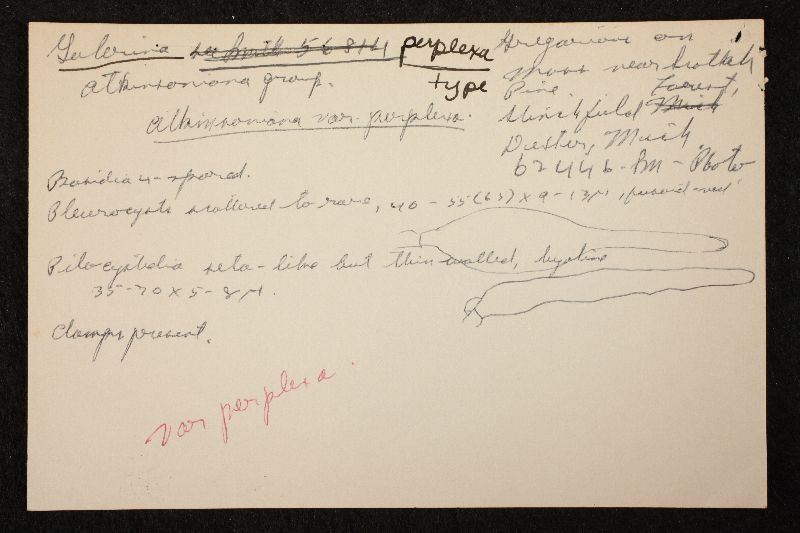 Galerina see Smith 56814 perplexa
type
atkinsoniana group.
atkinsoniana var. perplexa.
Gregarious on
moss near Scotch
Pine. Forest,
Stinchfield Mich
Dexter, Mich
62446 - Bn - Photo
Basidia 4-spored.
Pleurocysts scattered to rare, 40 - 55(65) x 9 - 13 µ, fusoid-vent
Pilocystidia seta-like but thin-walled, hyaline
35-70 x 5-8 µ.
Clamps present.
var perplexa.